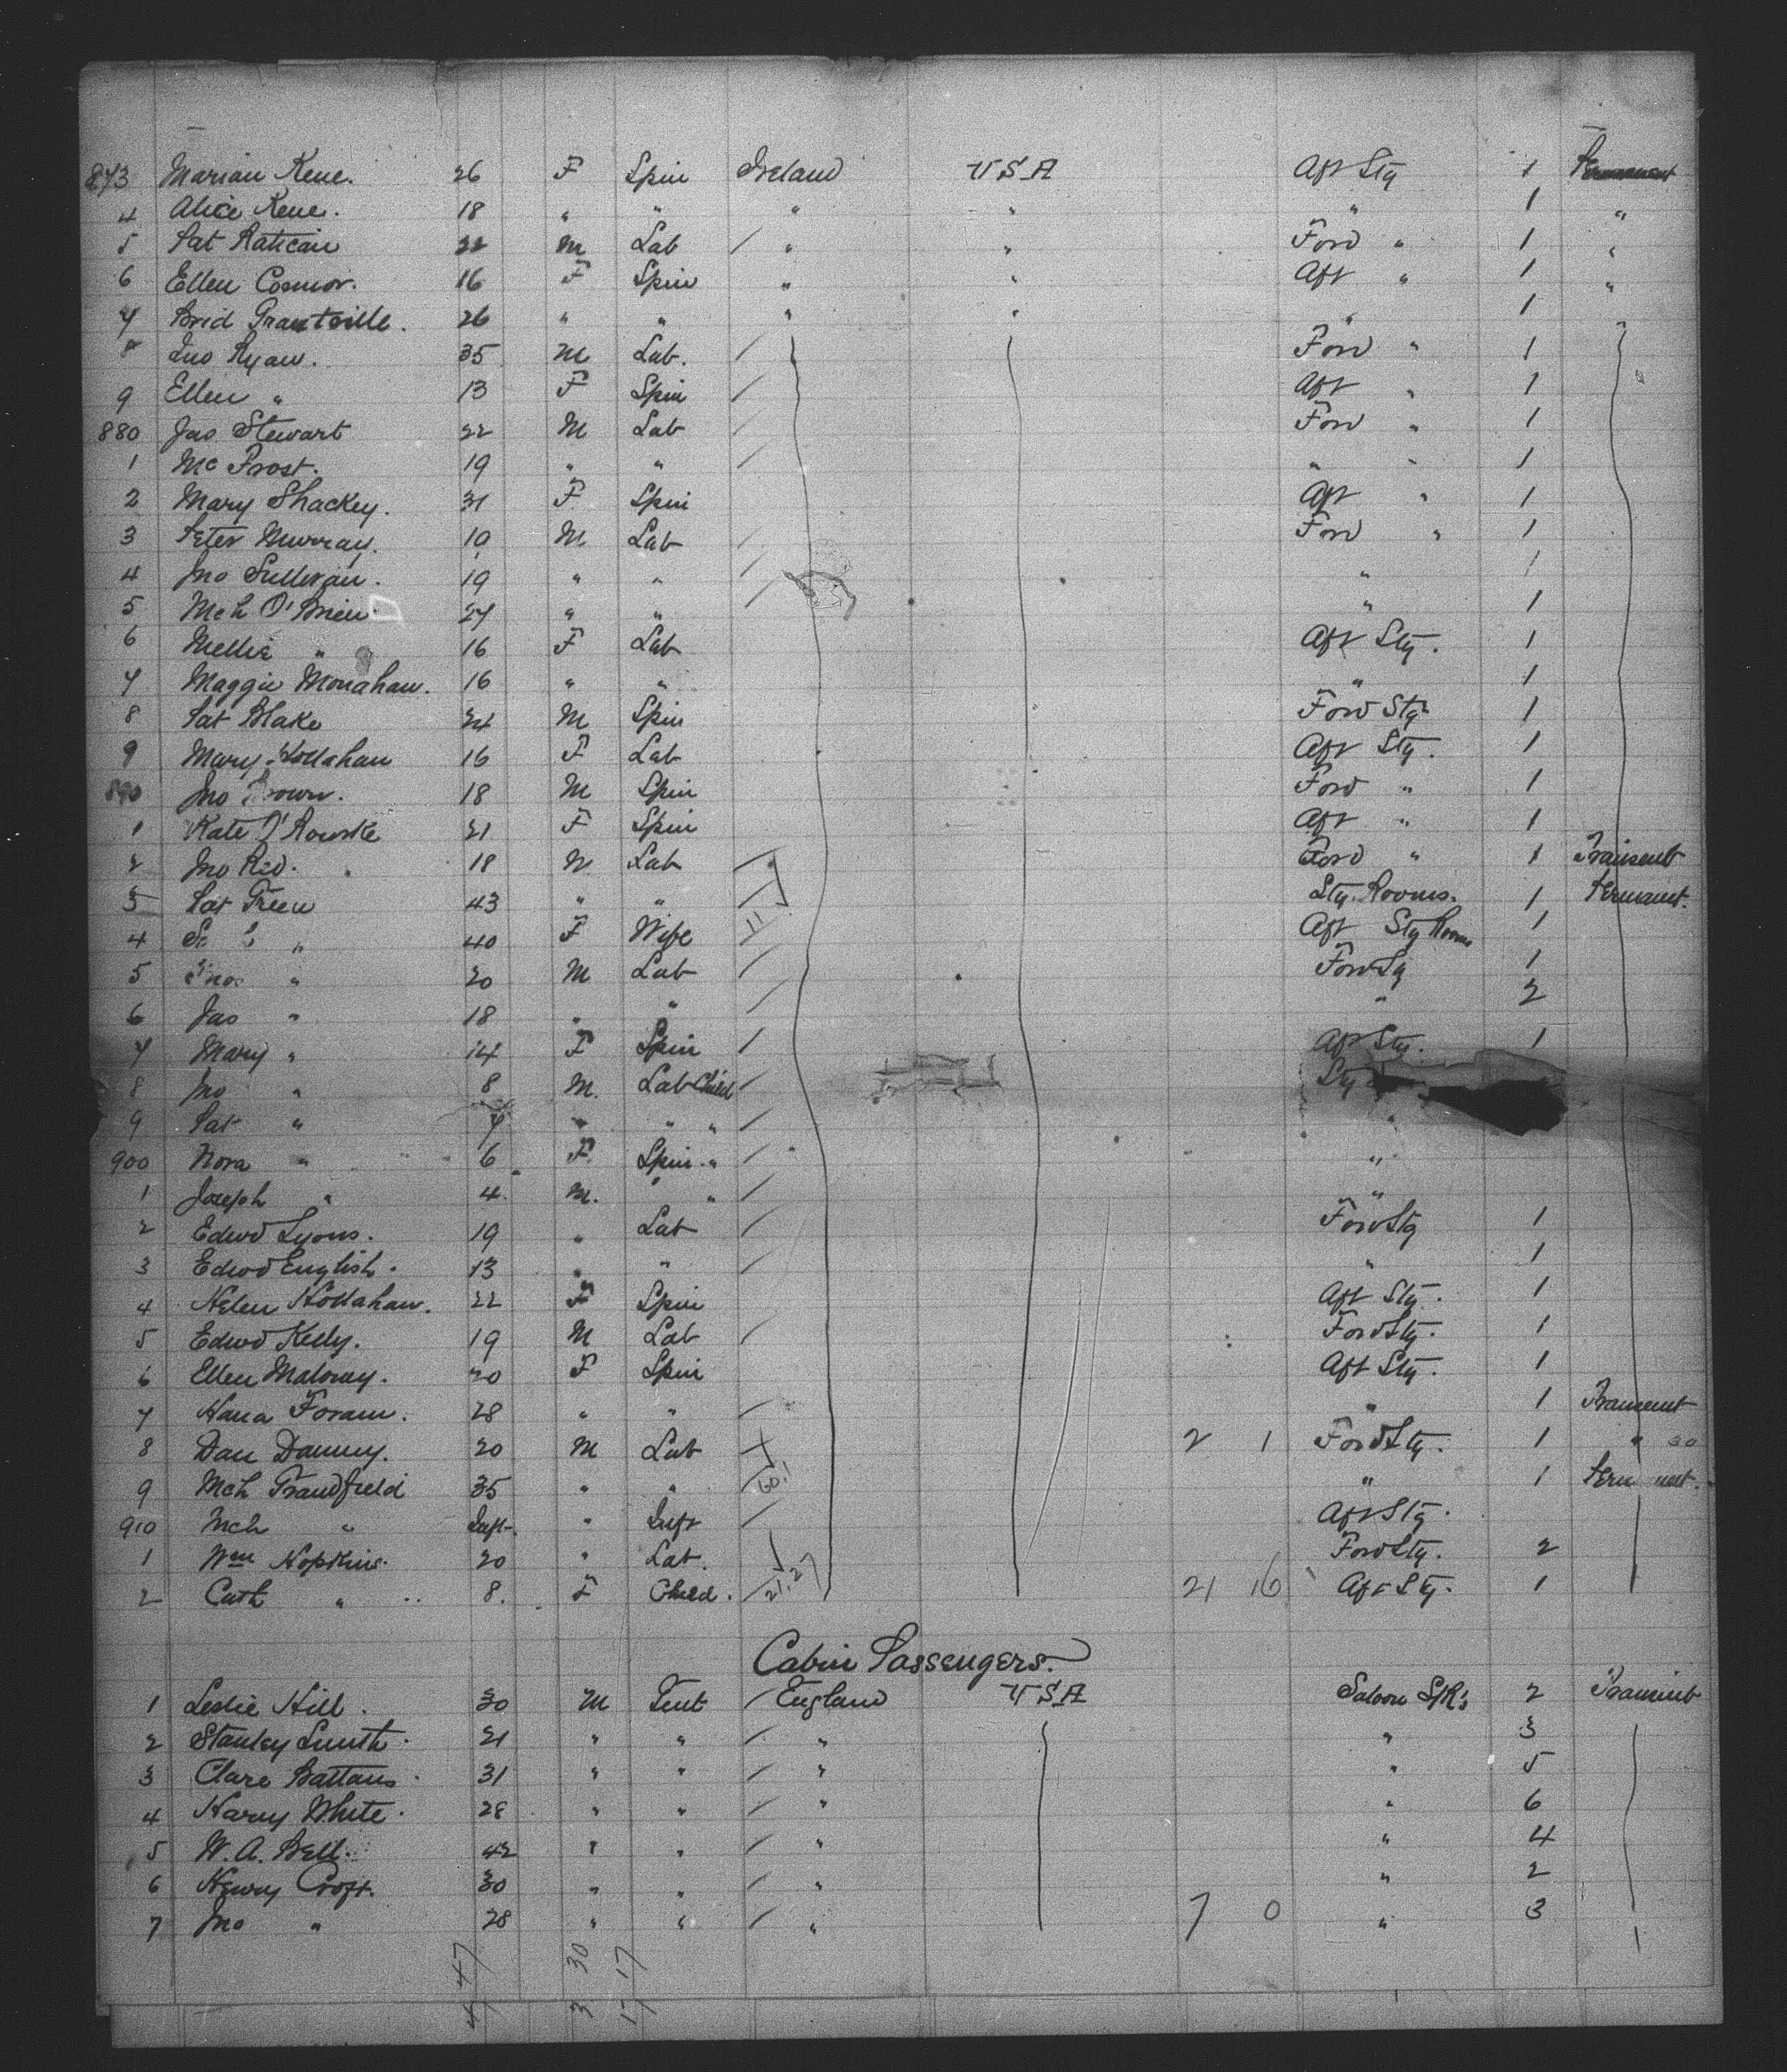 873 Marian Kene. 26 F Spin Ireland U S A Aft Stg 1 Permanent
4 Alice Kene. 18 " " " " " 1 "
5 Pat Ratican 22 M Lab / " " Ford " 1 "
6 Ellen Connor. 16 F Spin " " Aft " 1 "
7 Brid 26 " " " " " 1
8 Jno Ryan. 35 M Lab. / Ford " 1
9 Ellen " 13 F Spin / Aft " 1
880 Jas Stewart 22 M Lab / Ford " 1
1 Mc Frost. 19 " " / " " 1
2 Mary Shackey. 31 F Spin Aft " 1
3 Peter Murray. 19 M Lab / Ford " 1
4 Jno Sullivan. 19 " " / " 1
5 Mch O'Brien 27 " " / " 1
6 Nellie " 16 F Lab Aft Stg. 1
7 Maggie Monahan. 16 " " " 1
8 Pat Blake 24 M Spin Ford Stg 1
9 Mary Hollahan 16 F Lab Aft Stg. 1
890 Jno Brown. 18 M Spin Ford " 1
1 Kate O'Rourke 21 F Spin Aft " 1
2 Jno Rid. 18 M Lab / Ford " 1 Transent
3 Pat Freen 43 " " / Stg. Rooms. 1 Permant.
4 " 40 F Wife 11 Aft Stg Rooms 1
5 " 20 M Lab / Ford Stg 1
6 Jas " 18 " " / " 2
7 Mary " 14 F Spin / Aft Stg. 1
8 Jno " 8 M. Lab Child / Stg
9 Pat " 7 " " " / "
900 Nora " 6 F Spin " / "
1 Joseph " 4. M. " " / "
2 Edwd Lyons. 19 " Lab / Ford Stg 1
3 Edwd English. 13 " " / " 1
4 Helen Hollahan. 22 F Spin Aft Stg. 1
5 Edwd Kelly. 19 M Lab / Ford Stg. 1
6 Ellen Maloney. 20 F Spin Aft Stg. 1
7 Hana Foram. 28 " " / " 1 Transent
8 Dan Danny. 20 M Lab 2 1 Ford Stg. 1 "
9 Mch Grandfield 35 " " " 1 Permanent.
910 Mch " Inft. " Inft / Aft Stg.
1 Wm Hopkins. 20 " Lab. / Ford Stg. 2
2 Cath " 8. F Child. 21.27 21 16 Aft Stg. 1
Cabin Passengers.
1 Leslie Hill. 30 M Gent / England U S A Saloon S/R's 2 Transent
2 Stanley Smith. 21 " " / " " 3
3 Clare Battans. 31 " " / " " 5
4 Harry White. 28 " " / " " 6
5 W. A. Bell. 42 " " / " " 4
6 Henry Croft. 30 " " / " " 2
7 Jno " 28 " " / " 7 0 " 3
47 30 17